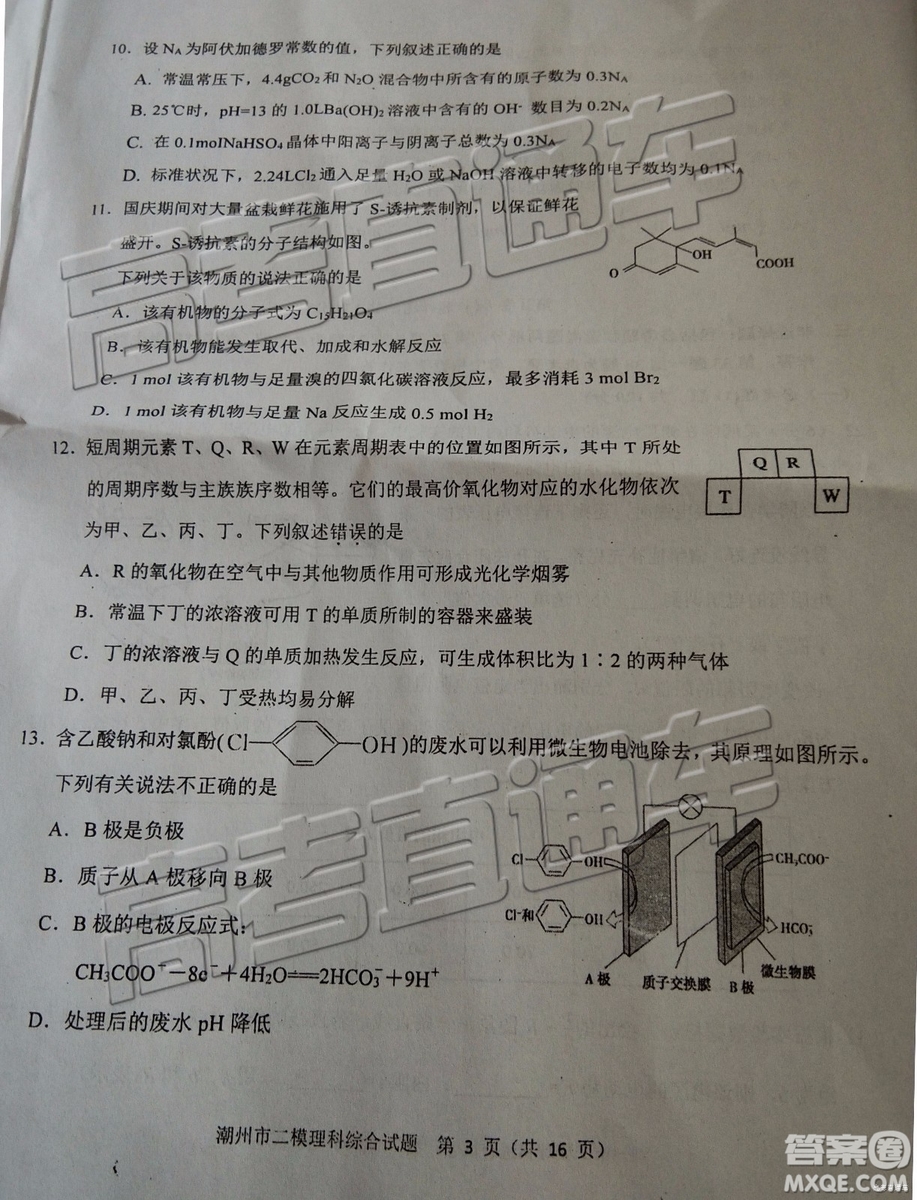 10. 设 NA 为阿伏加德罗常数的值，下列叙述正确的是
A. 常温常压下，4.4gCO2 和 N2O 混合物中所含有的原子数为 0.3NA
B. 25℃时，pH=13 的 1.0LBa(OH)2 溶液中含有的 OH⁻ 数目为 0.2NA
C. 在 0.1molNaHSO4 晶体中阳离子与阴离子总数为 0.3NA
D. 标准状况下，2.24LCl2 通入足量 H2O 或 NaOH 溶液中转移的电子数均为 0.1NA
11. 国庆期间对大量盆栽鲜花施用了 S-诱抗素制剂，以保证鲜花
盛开。S-诱抗素的分子结构如图。
下列关于该物质的说法正确的是
O OH COOH
A. 该有机物的分子式为 C15H21O4
B. 该有机物能发生取代、加成和水解反应
C. 1 mol 该有机物与足量溴的四氯化碳溶液反应，最多消耗 3 mol Br2
D. 1 mol 该有机物与足量 Na 反应生成 0.5 mol H2
12. 短周期元素 T、Q、R、W 在元素周期表中的位置如图所示，其中 T 所处
的周期序数与主族族序数相等。它们的最高价氧化物对应的水化物依次
为甲、乙、丙、丁。下列叙述错误的是
Q R
T W
A. R 的氧化物在空气中与其他物质作用可形成光化学烟雾
B. 常温下丁的浓溶液可用 T 的单质所制的容器来盛装
C. 丁的浓溶液与 Q 的单质加热发生反应，可生成体积比为 1∶2 的两种气体
D. 甲、乙、丙、丁受热均易分解
13. 含乙酸钠和对氯酚(Cl—OH)的废水可以利用微生物电池除去，其原理如图所示。
下列有关说法不正确的是
A. B 极是负极
B. 质子从 A 极移向 B 极
C. B 极的电极反应式:
CH3COO⁻—8e⁻+4H2O══2HCO3⁻+9H⁺
D. 处理后的废水 pH 降低
Cl OH CH3COO⁻
Cl⁻和 OH HCO3⁻
A 极 质子交换膜 B 极 微生物膜
潮州市二模理科综合试题 第 3 页（共 16 页）
高考直通车
高考直通车
答案圈
MXQE.COM